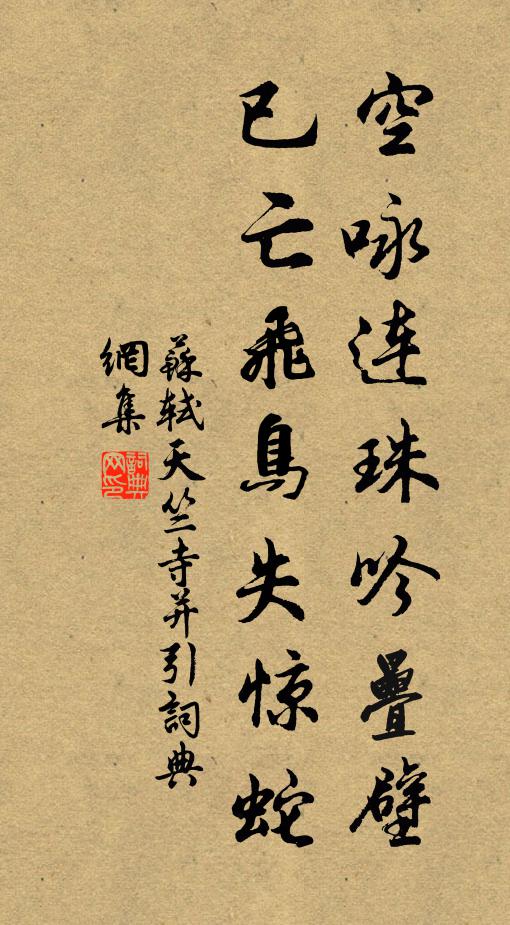 空咏连珠吟疊壁
已亡飛鳥失惊蛇
蘇轼天竺寺并引詞典
網集
詞典网印